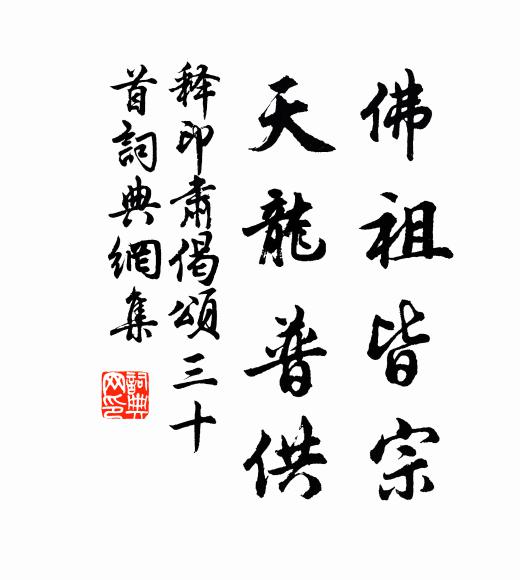 佛祖皆宗
天龍普供
释印肅偈頌三十
首詞典網集
詞典
网印